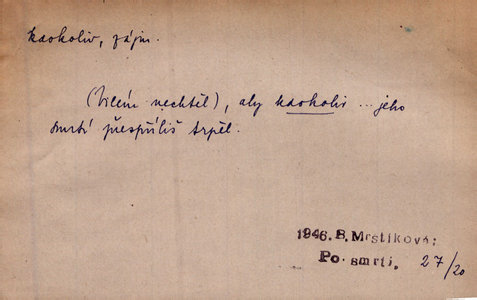 kdokoliv, zájm.
(Vilém nechtěl), aby kdokoliv ... jeho
smrtí přespříliš trpěl.
1946. B. Mrštíková:
Po smrti, 27/20